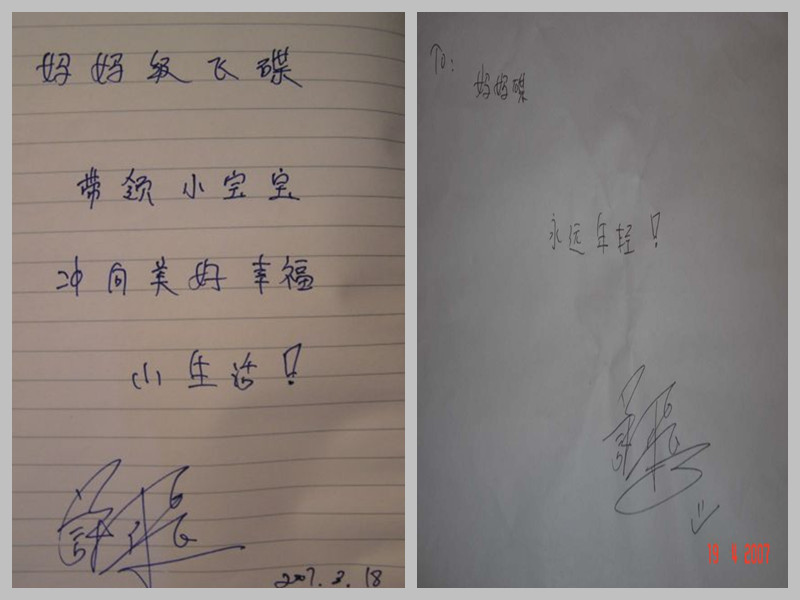 妈妈级飞碟
带领小宝宝
冲向美好幸福
小生活!
2007.3.18
To:
妈妈碟
永远年轻!
19 4 2007